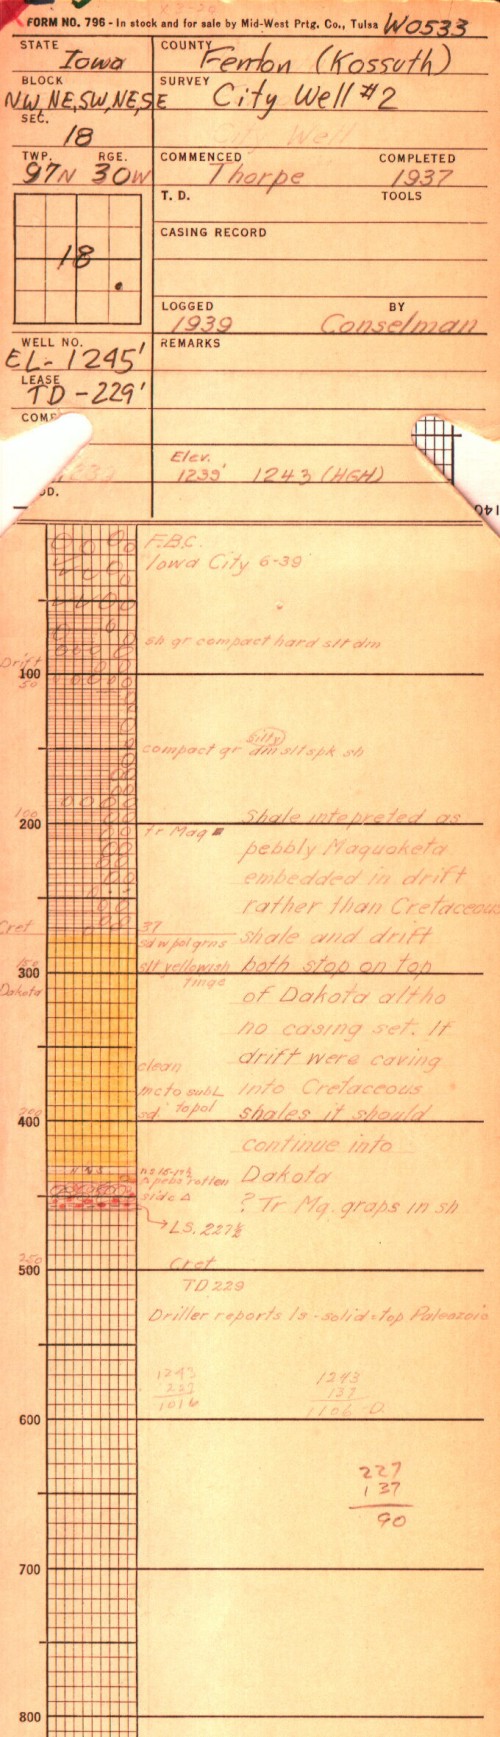 FORM NO. 796 - In stock and for sale by Mid-West Prtg. Co., Tulsa W0533
STATE Iowa COUNTY Fenton (Kossuth)
BLOCK NW, NE, SW, NE, SE SURVEY City Well #2
SEC. 18 City Well
TWP. 97N RGE. 30W COMMENCED Thorpe COMPLETED 1937
T. D. TOOLS
18
CASING RECORD
LOGGED 1939 BY Conselman
WELL NO. REMARKS
EL- 1245'
LEASE
TD - 229'
Elev.
1239' 1243 (HGH)
F.B.C.
Iowa City 6-39
sh gr compact hard slt dm
Drift
100
50
silty
compact gr dm slt spk sh
100
200
tr Maq
Shale intepreted as
pebbly Maquoketa
embedded in drift
rather than Cretaceous
shale and drift
both stop on top
of Dakota altho
no casing set. If
drift were caving
into Cretaceous
shales it should
continue into
Dakota
? Tr Mq. graps in sh
Cret
37
sd w pol grns
slt yellowish
tinge
150
300
Dakota
clean
mc to subL
sd to pol
200
400
NS
side Δ
LS. 227½
250
500
Cret
TD 229
Driller reports ls - solid = top Paleozoic
1243
227
1016
1243
137
1106 D.
600
227
137
90
700
800